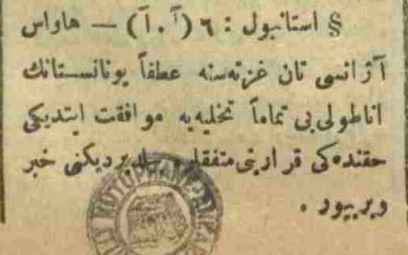 § استانبول : ٦ (آ . آ) — هاواس
آژانسی تان غزته‌سنه عطفاً یونانستانك
اناطولی‌یی تماماً تخلیه‌یه موافقت ایتدیكی
حقنده‌كی قرارینی متفقلره بیلدیردیكنی خبر
ویرییور .